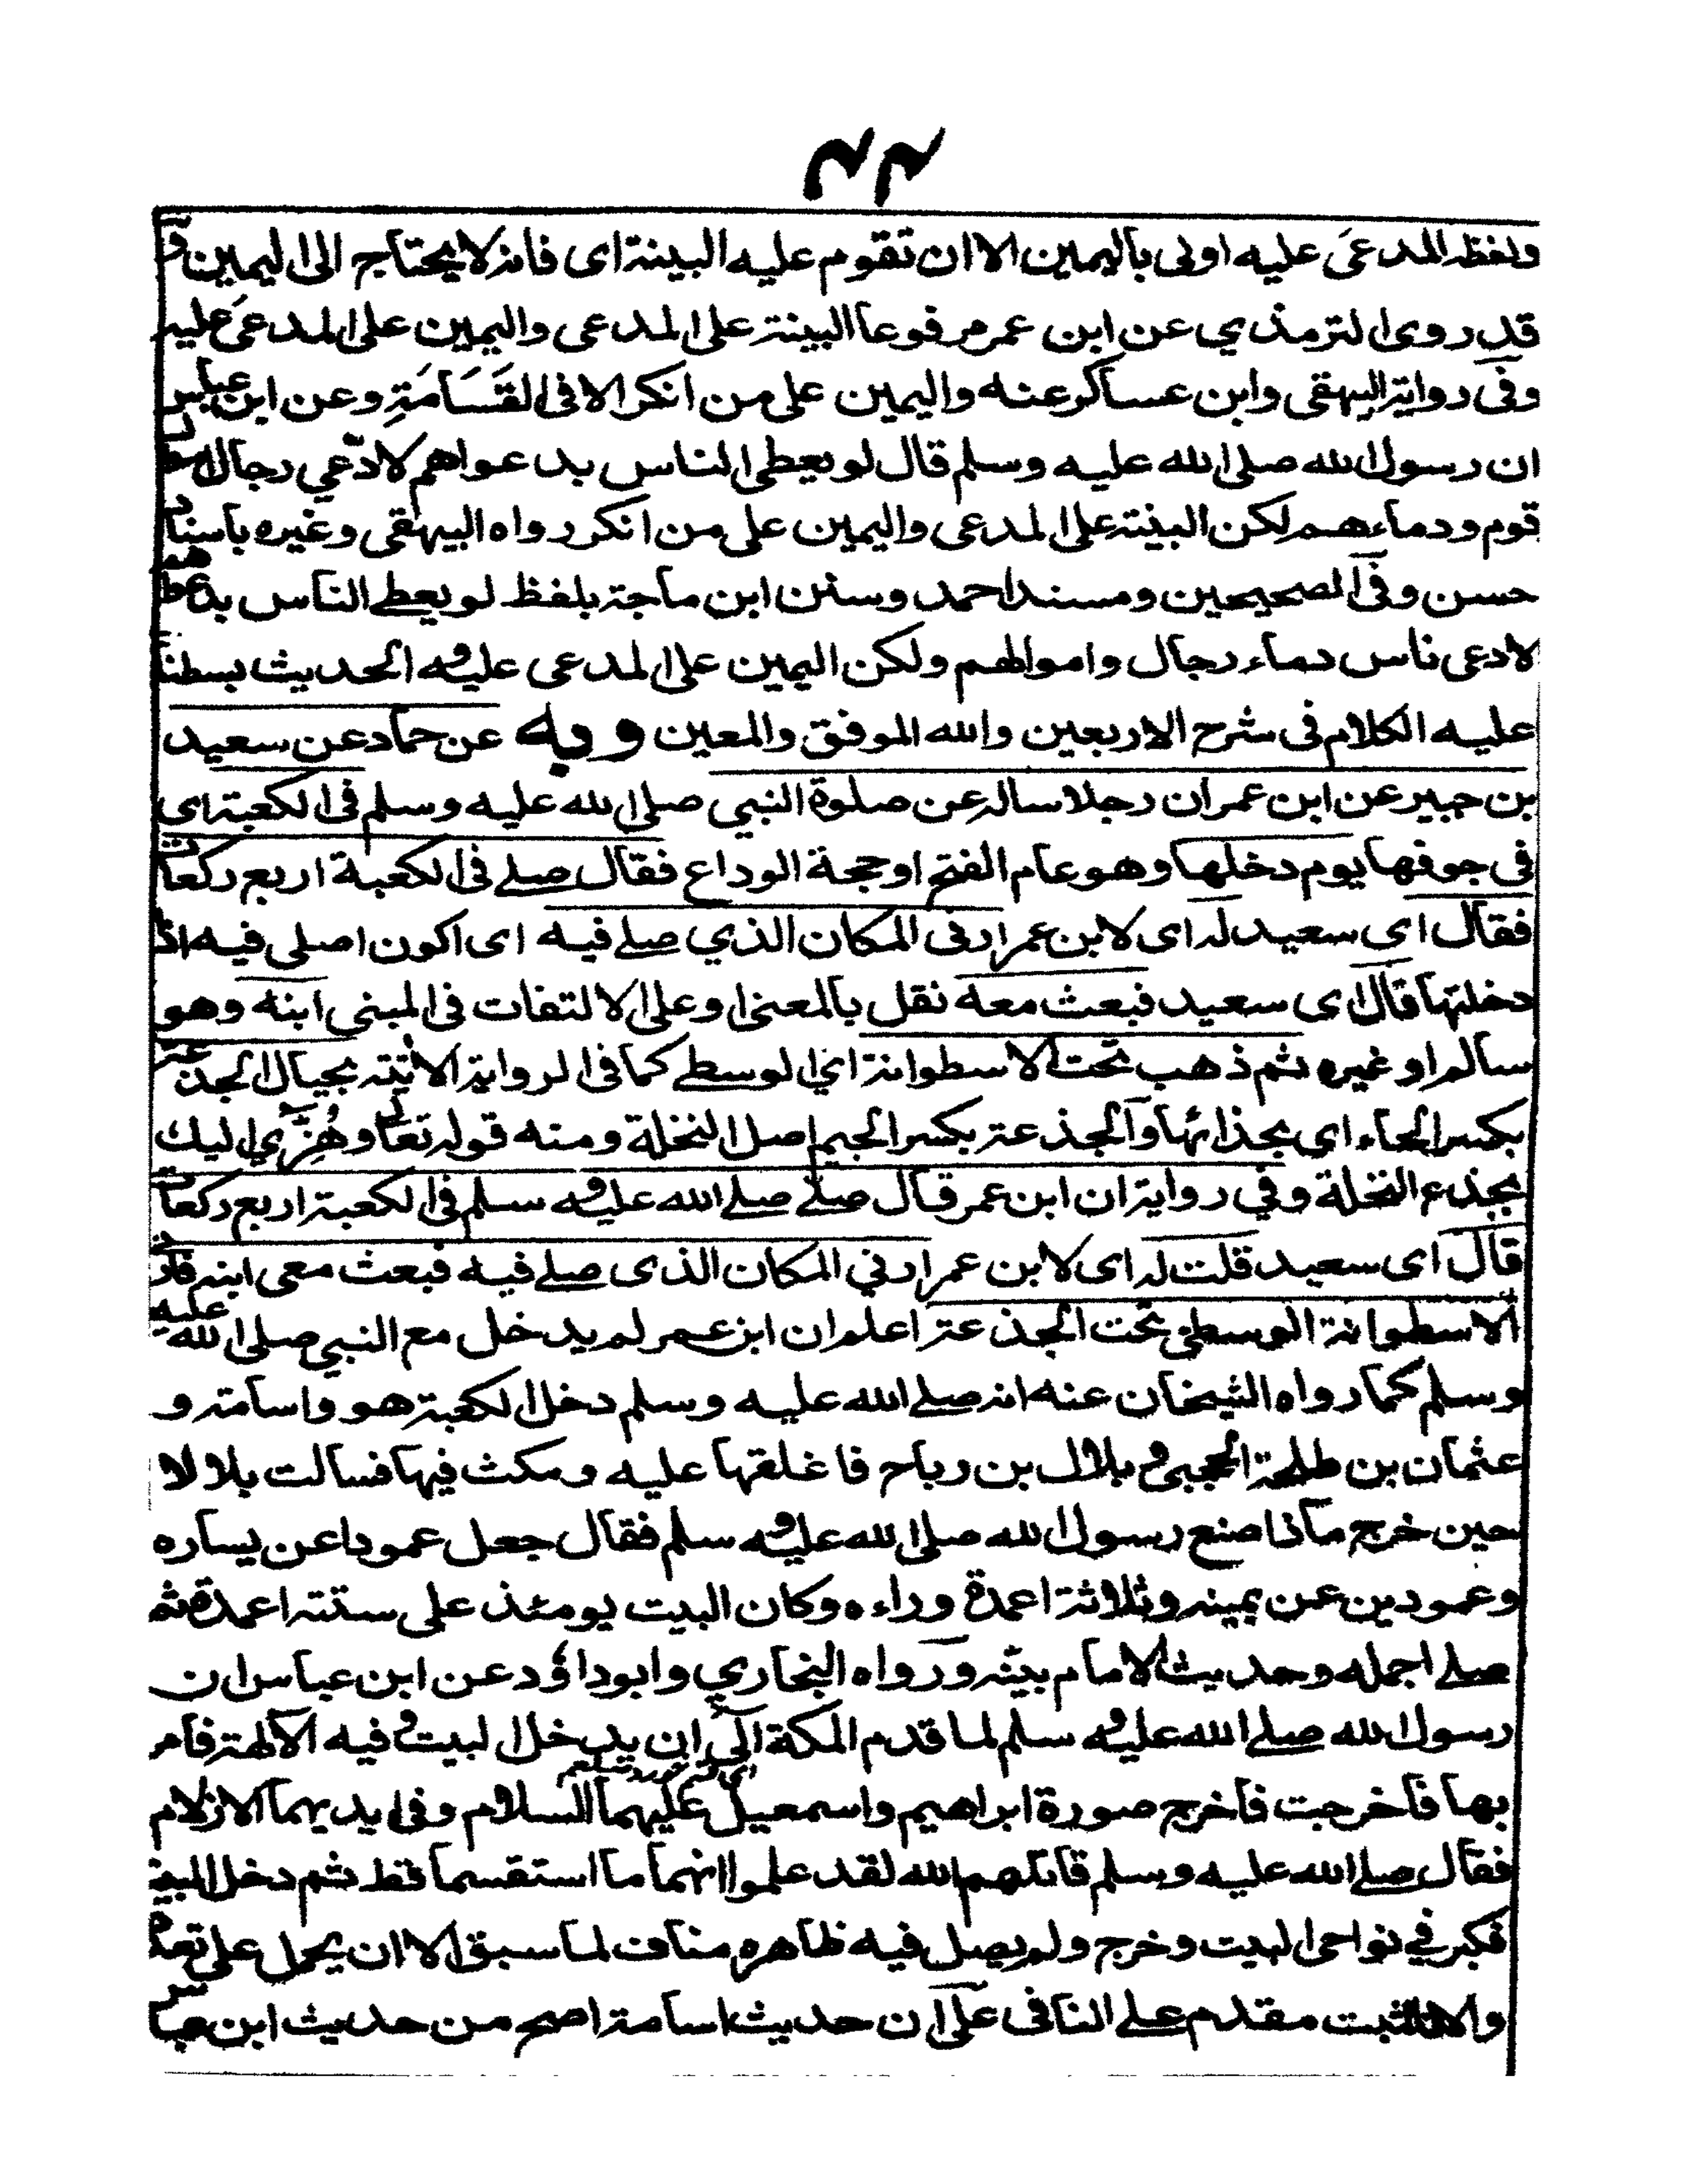 ٢٢
ولفظه المدعَى عليه اولى باليمين الا ان تقوم عليه البينة اى فانه لا يحتاج الى اليمين و
قد روى الترمذي عن ابن عمر مرفوعا البينة على المدعى واليمين على المدعَى عليه
وفى رواية البيهقى وابن عساكر عنه واليمين على من انكر الا فى القَسَامَةِ وعن ابن عباس
ان رسول الله صلى الله عليه وسلم قال لو يعطى الناس بدعواهم لادّعي رجال اموال
قوم ودماءهم لكن البينة على المدعى واليمين على من انكر رواه البيهقى وغيره باسناد
حسن وفى الصحيحين ومسند احمد وسنن ابن ماجة بلفظ لو يعطے الناس بدعواهم
لادعى ناس دماء رجال واموالهم ولكن اليمين على المدعى عليه الحديث بسطنا
عليه الكلام فى شرح الاربعين والله الموفق والمعين وبه عن حماد عن سعيد
بن جبير عن ابن عمر ان رجلا ساله عن صلوة النبي صلى الله عليه وسلم فى الكعبة اى
فى جوفها يوم دخلها وهو عام الفتح او حجة الوداع فقال صلے فى الكعبة اربع ركعات
فقال اى سعيد له اى لابن عمر ارنى المكان الذي صلے فيه اى اكون اصلى فيه اذا
دخلتها قال اى سعيد فبعث معه نقل بالمعنى او على الالتفات فى المبنى ابنه وهو
سالم او غيره ثم ذهب تحت الاسطوانة اى الوسطے كما فى الرواية الاتية بحيال الجذعة
بكسر الحاء اى بحذائها والجذعة بكسر الجيم اصل النخلة ومنه قوله تعالى وهُزِّي اليك
بجذع النخلة وفي رواية ان ابن عمر قال صلے صلے الله عليه وسلم فى الكعبة اربع ركعات
قال اى سعيد قلت له اى لابن عمر ارني المكان الذى صلے فيه فبعث معى ابنه فاذ
الاسطوانة الوسطى تحت الجذعة اعلم ان ابن عمر لم يدخل مع النبي صلى الله عليه
وسلم كما رواه الشيخان عنه انه صلے الله عليه وسلم دخل الكعبة هو واسامة و
عثمان بن طلحة الحجبى وبلال بن رباح فاغلقها عليه ومكث فيها فسالت بلالا
حين خرج ماذا صنع رسول الله صلى الله عليه وسلم فقال جعل عمودا عن يساره
وعمودين عن يمينه وثلاثة اعمدة وراءه وكان البيت يومئذ على ستة اعمدة ثم
صلے اجمله وحديث الامام بينه ورواه البخاري وابوداؤد عن ابن عباس ان
رسول الله صلے الله عليه وسلم لما قدم المكة ابى ان يدخل البيت وفيه الآلهة فامر
بها فاخرجت فاخرج صورة ابراهيم واسمعيل عليهما السلام وفى ايديهما الازلام
فقال صلے الله عليه وسلم قاتلهم الله لقد علموا انهما ما استقسما قط ثم دخل البيت
فكبر في نواحى البيت وخرج ولم يصل فيه ظاهره مناف لما سبق الا ان يحمل على تعدد
والا فالمثبت مقدم علے النافى على ان حديث اسامة اصح من حديث ابن عباس